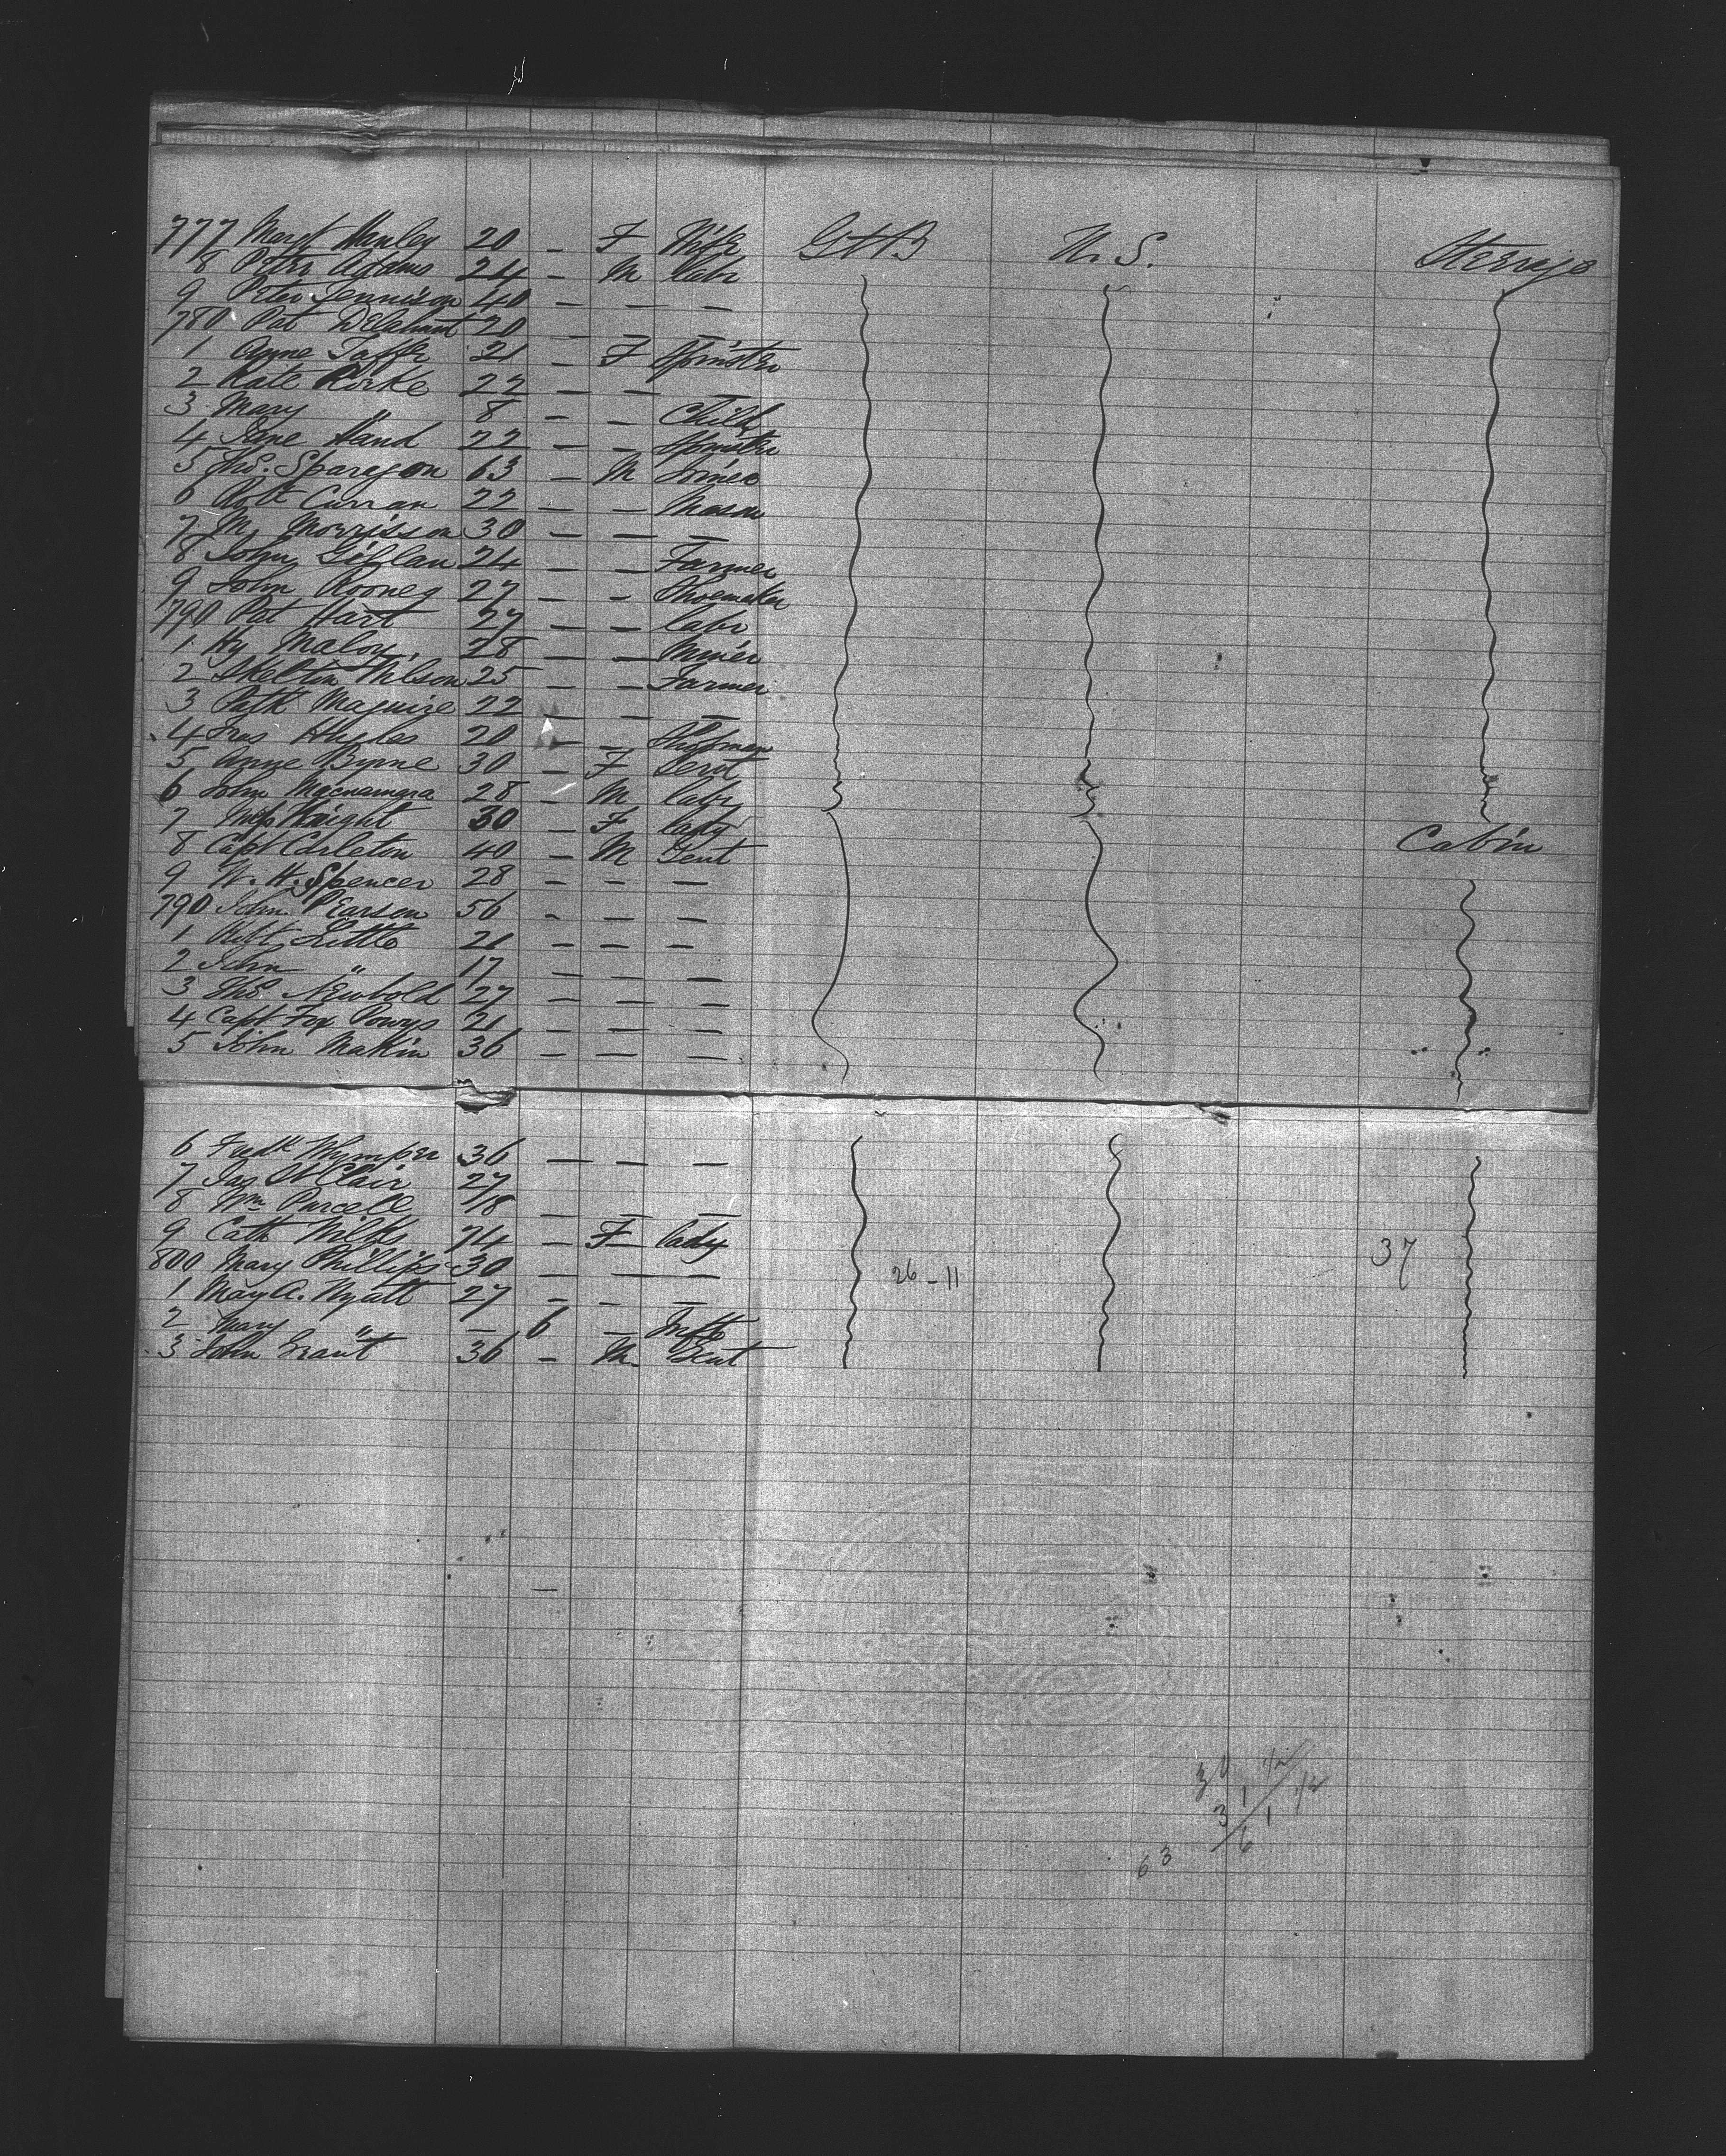 777 Margt Hanley 20 — F Wife Gt B U. S. Steerage
8 Peter Adams 24 — M labr
9 Peter Jennison 40 — — —
780 Pat Delahunt 20 — — —
1 Anne Taffe 21 — F Spinster
2 Kate Rorke 22 — — —
3 Mary " 8 — — Child
4 Jane Hand 22 — — Spinster
5 Thos. Sparagon 63 — M Joiner
6 Robt Curran 22 — — Mason
7 M. Morrisson 30 — — —
8 John Gillan 24 — — Farmer
9 John Rooney 27 — — Shoemaker
790 Pat Hart 27 — — labr
1 Hy Maloy. 28 — — Miner
2 Skelton Wilson 25 — — Farmer
3 Patk Maguire 22 — — —
4 Fras Hughes 20 — —
5 Anne Byrne 30 — F Servt
6 John Macnamara 28 — M labr
7 Knight 30 — F lady
8 Capt Carleton 40 — M Gent Cabin
9 W. H. Spencer 28 — — —
790 John Pearson 56 — — —
1 Robt Little 21 — — —
2 John " 17 — — —
3 Thos Newbold 27 — — —
4 Capt Fox Powys 21 — — —
5 John Makin 36 — — —
6 Fredk Whymper 36 — — —
7 Jas St Clair 27
8 Wm Purcell 18 — — —
9 Cath Wilks 74 — F lady
800 Mary Phillips 30 — — — 26 - 11 37
1 Mary A. Wyatt 27 — — —
2 Mary " — 6 — Inft
3 John Grant 36 — M. Gent
63